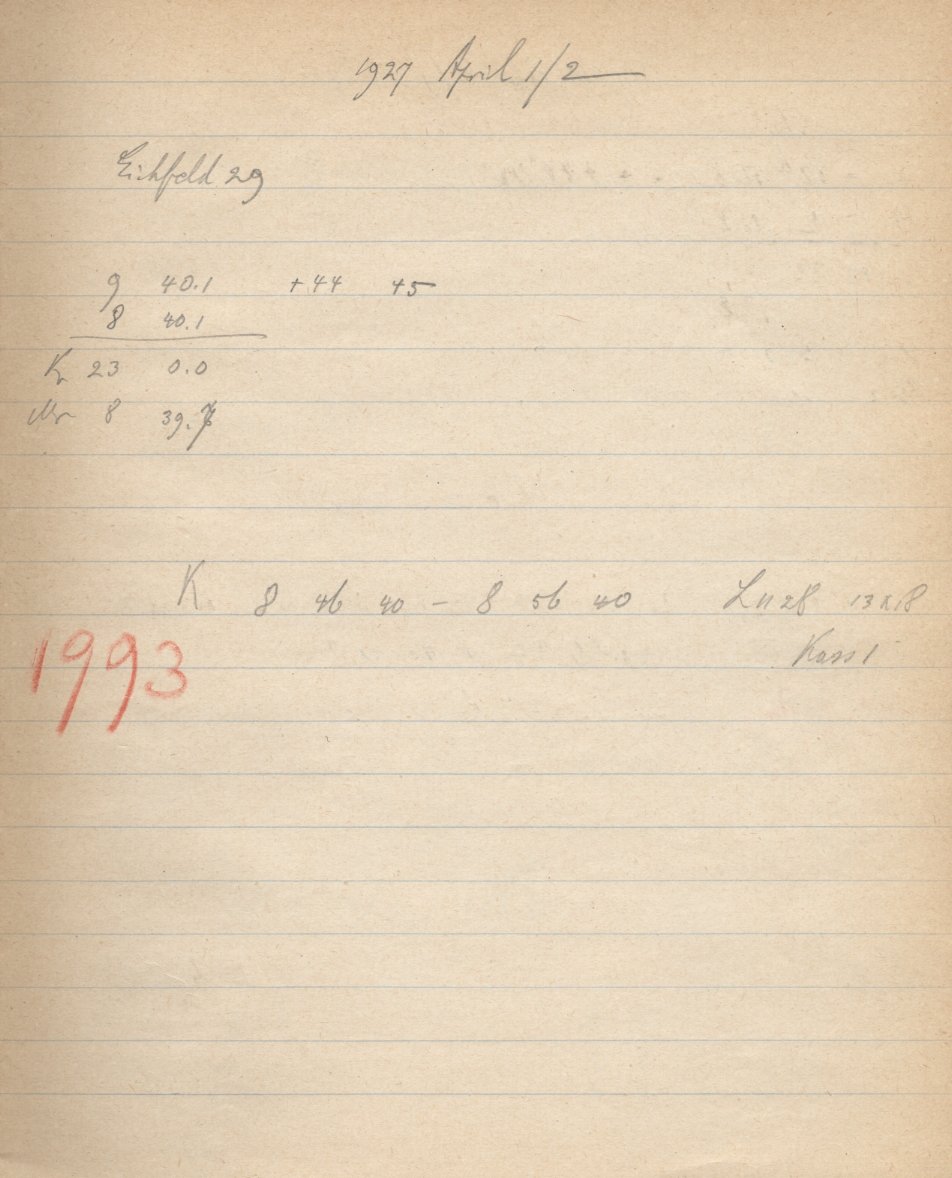 1927 April 1/2
Eichfeld 29
9 40.1 +44 +5
8 40.1
K 23 0.0
8 39.
K 8 46 40 – 8 56 40 13x18
Kass 1
1993